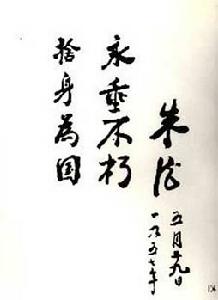 捨身為国
永垂不朽
朱德
一九五七年
五月廿九日